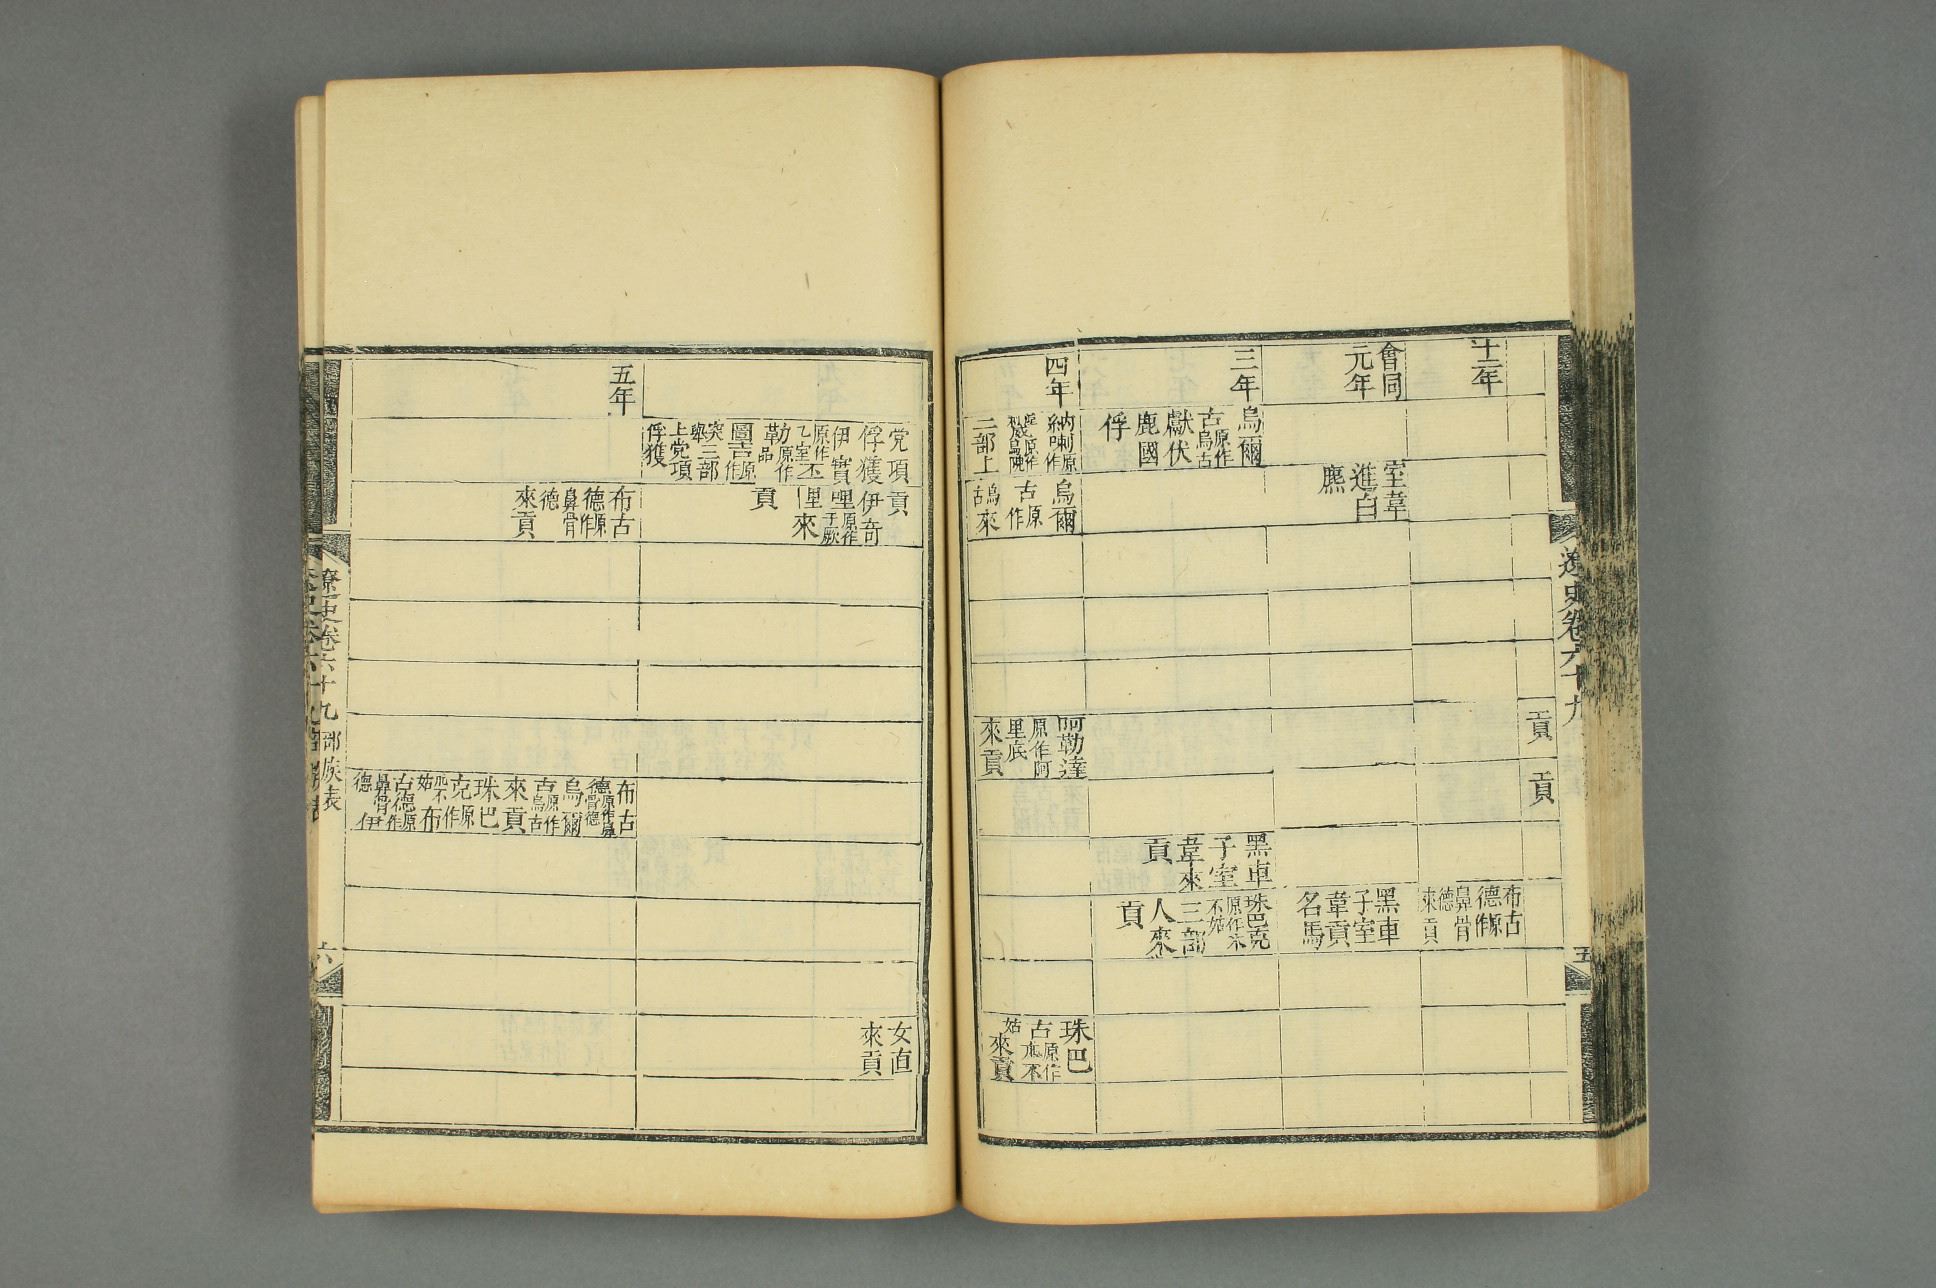 遼史卷六十九
五
貢
貢
十一年
布古
德原作
鼻骨
德
來貢
會同
元年
室韋
進白
麃
黑車
子室
韋貢
名馬
三年
烏爾
古原作烏古
獻伏
鹿國
俘
黑車
子室
韋來
貢
珠巴克
原作朮不姑
三部
人來
貢
四年
納喇原作
二部上
烏爾
古原作
烏古來
阿勒達
原作阿
里底
來貢
珠巴
古原作朮不
姑來貢
党項
俘獲
伊實
原作乙室
勒原作品
圖吉原作
突舉三部
上党項
俘獲
貢
伊奇
哩原作于厥
里來
貢
女直
來貢
五年
布古
德原作
鼻骨
德
來貢
布古
德原作鼻骨德
烏爾
古原作烏古
來貢
珠巴
克原作
朮不姑
布
古德原作
鼻骨德
伊
遼史卷六十九
部族表
六